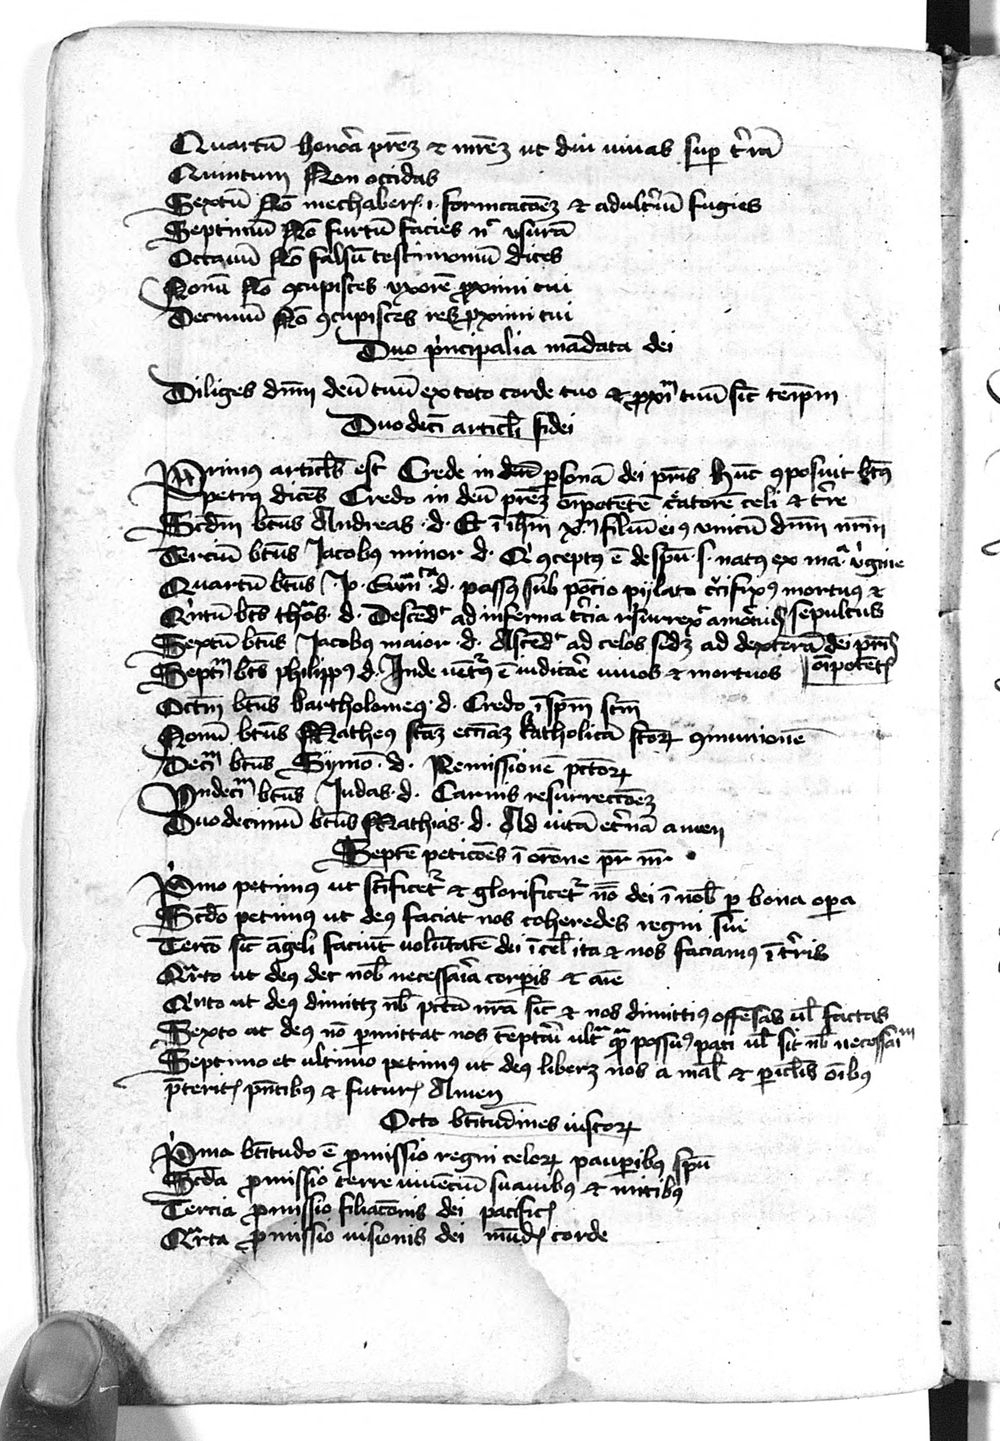 Quartū honora prēz & mrēz ut diu uiuas sup t̓rā
Quintum Non occidas
Sextū Nō mechaberꝭ .i. fornicacōez & adult̓iū fugies
Septimū Nō furtū facies nec vsurā
Octauū Nō falsū testimoniū dices
Nonū Nō ꝯcupisces vxorē ꝓximi tui
Decimū Nō ꝯcupisces rez ꝓximi tui
Duo pͥncipalia mādata dei
Diliges dnm deū tuū ex toto corde tuo & ꝓximū tuū sic̄ teip̄m
Duodeci articl̓i fidei
Primꝰ articl̓s est Crede in deū ꝑsonā dei pr̄is Hūc ꝯposuit btūs
petrꝰ dicēs Credo in deū prēz oīpotētē c̓atorē celi & t̓re
Scd̄m bt̄us Andreas ·d· Et ī ih̄m xm̄ filiū eiꝰ vnicū dnm nrm̄
Terciū bt̄us Jacobꝰ minor ·d· Qͥ ꝯceptꝰ ē de spū ·s· natꝰ ex maͬ v̓gine
Quartū bt̄us Jo. Ewaͫ ·d· passꝰ sub pōcio pylato c̓cifixꝰ mortuꝰ &
sepultus
Qͥntū bt̄s thōas ·d· Descēdͭ ad inferna t̓cia r̓surrexͭ a mortuis
Sextū bt̄us Jacobus maior ·d· Ascēdͭ ad celos sedꝫ ad dexterā dei pr̄is
oīpotētꝭ
Septīͫ bt̄s philippꝰ ·d· Inde uētꝰ ē iudicāe uiuos & mortuos
Octm̄ bt̄us bartholomeꝰ ·d· Credo ī sp̄m scm̄
Nonū bt̄us Matheꝰ scāz eccīaz katholicā scōꝝ ꝯmunionē
Decīͫ bt̄us Symō ·d· Remissionē pctōꝝ
Vndecīͫ bt̄us Judas ·d· Carnis resurreccōez
Duodecimū bt̄us Mathias ·d· Ad uitā et̓nā amen
Septē peticōes ī orōne pr̄ nr̄
Pͥmo petimꝰ ut sc̄ificetͬ & glorificetͬ nō dei ī nob̄ ꝑ bona oꝑa
Scdo petimꝰ ut deꝰ faciat nos coheredes regni sui
Tercō sic̄ āgeli faciūt uolūtatē dei ī cel̄ ita & nos faciamꝰ ī t̓ris
Qͣrto ut deꝰ det nob̄ necessaͥa corꝑis & aīe
Qͥnto ut deꝰ dimittꝫ nb̄ pctā nrā sic̄ & nos dimittiꝰ offesas ul̄ factas
Sexto ut deꝰ nō ꝑmittat nos tēptāri ultͣ qͣm possūꝰ pati ul̄ sit nb̄ necessaͥm
Septimo et ultimo petimꝰ ut deꝰ liberꝫ nos a mal̄ & ꝑicl̄is oībꝰ
p̄teritꝭ pn̄tibus & futurꝭ Amen
Octo bt̄itudines iustoꝝ
Pͥma bt̄itudo ē ꝓmissio regni celoꝝ pauꝑibꝰ spū
Scda ꝓmissio terre uiuēciū suauibꝰ & mitibꝰ
Tercia ꝓmissio filiacōnis dei pacificꝭ
Qͣrta ꝓmissio uisionis dei mūdꝭ corde